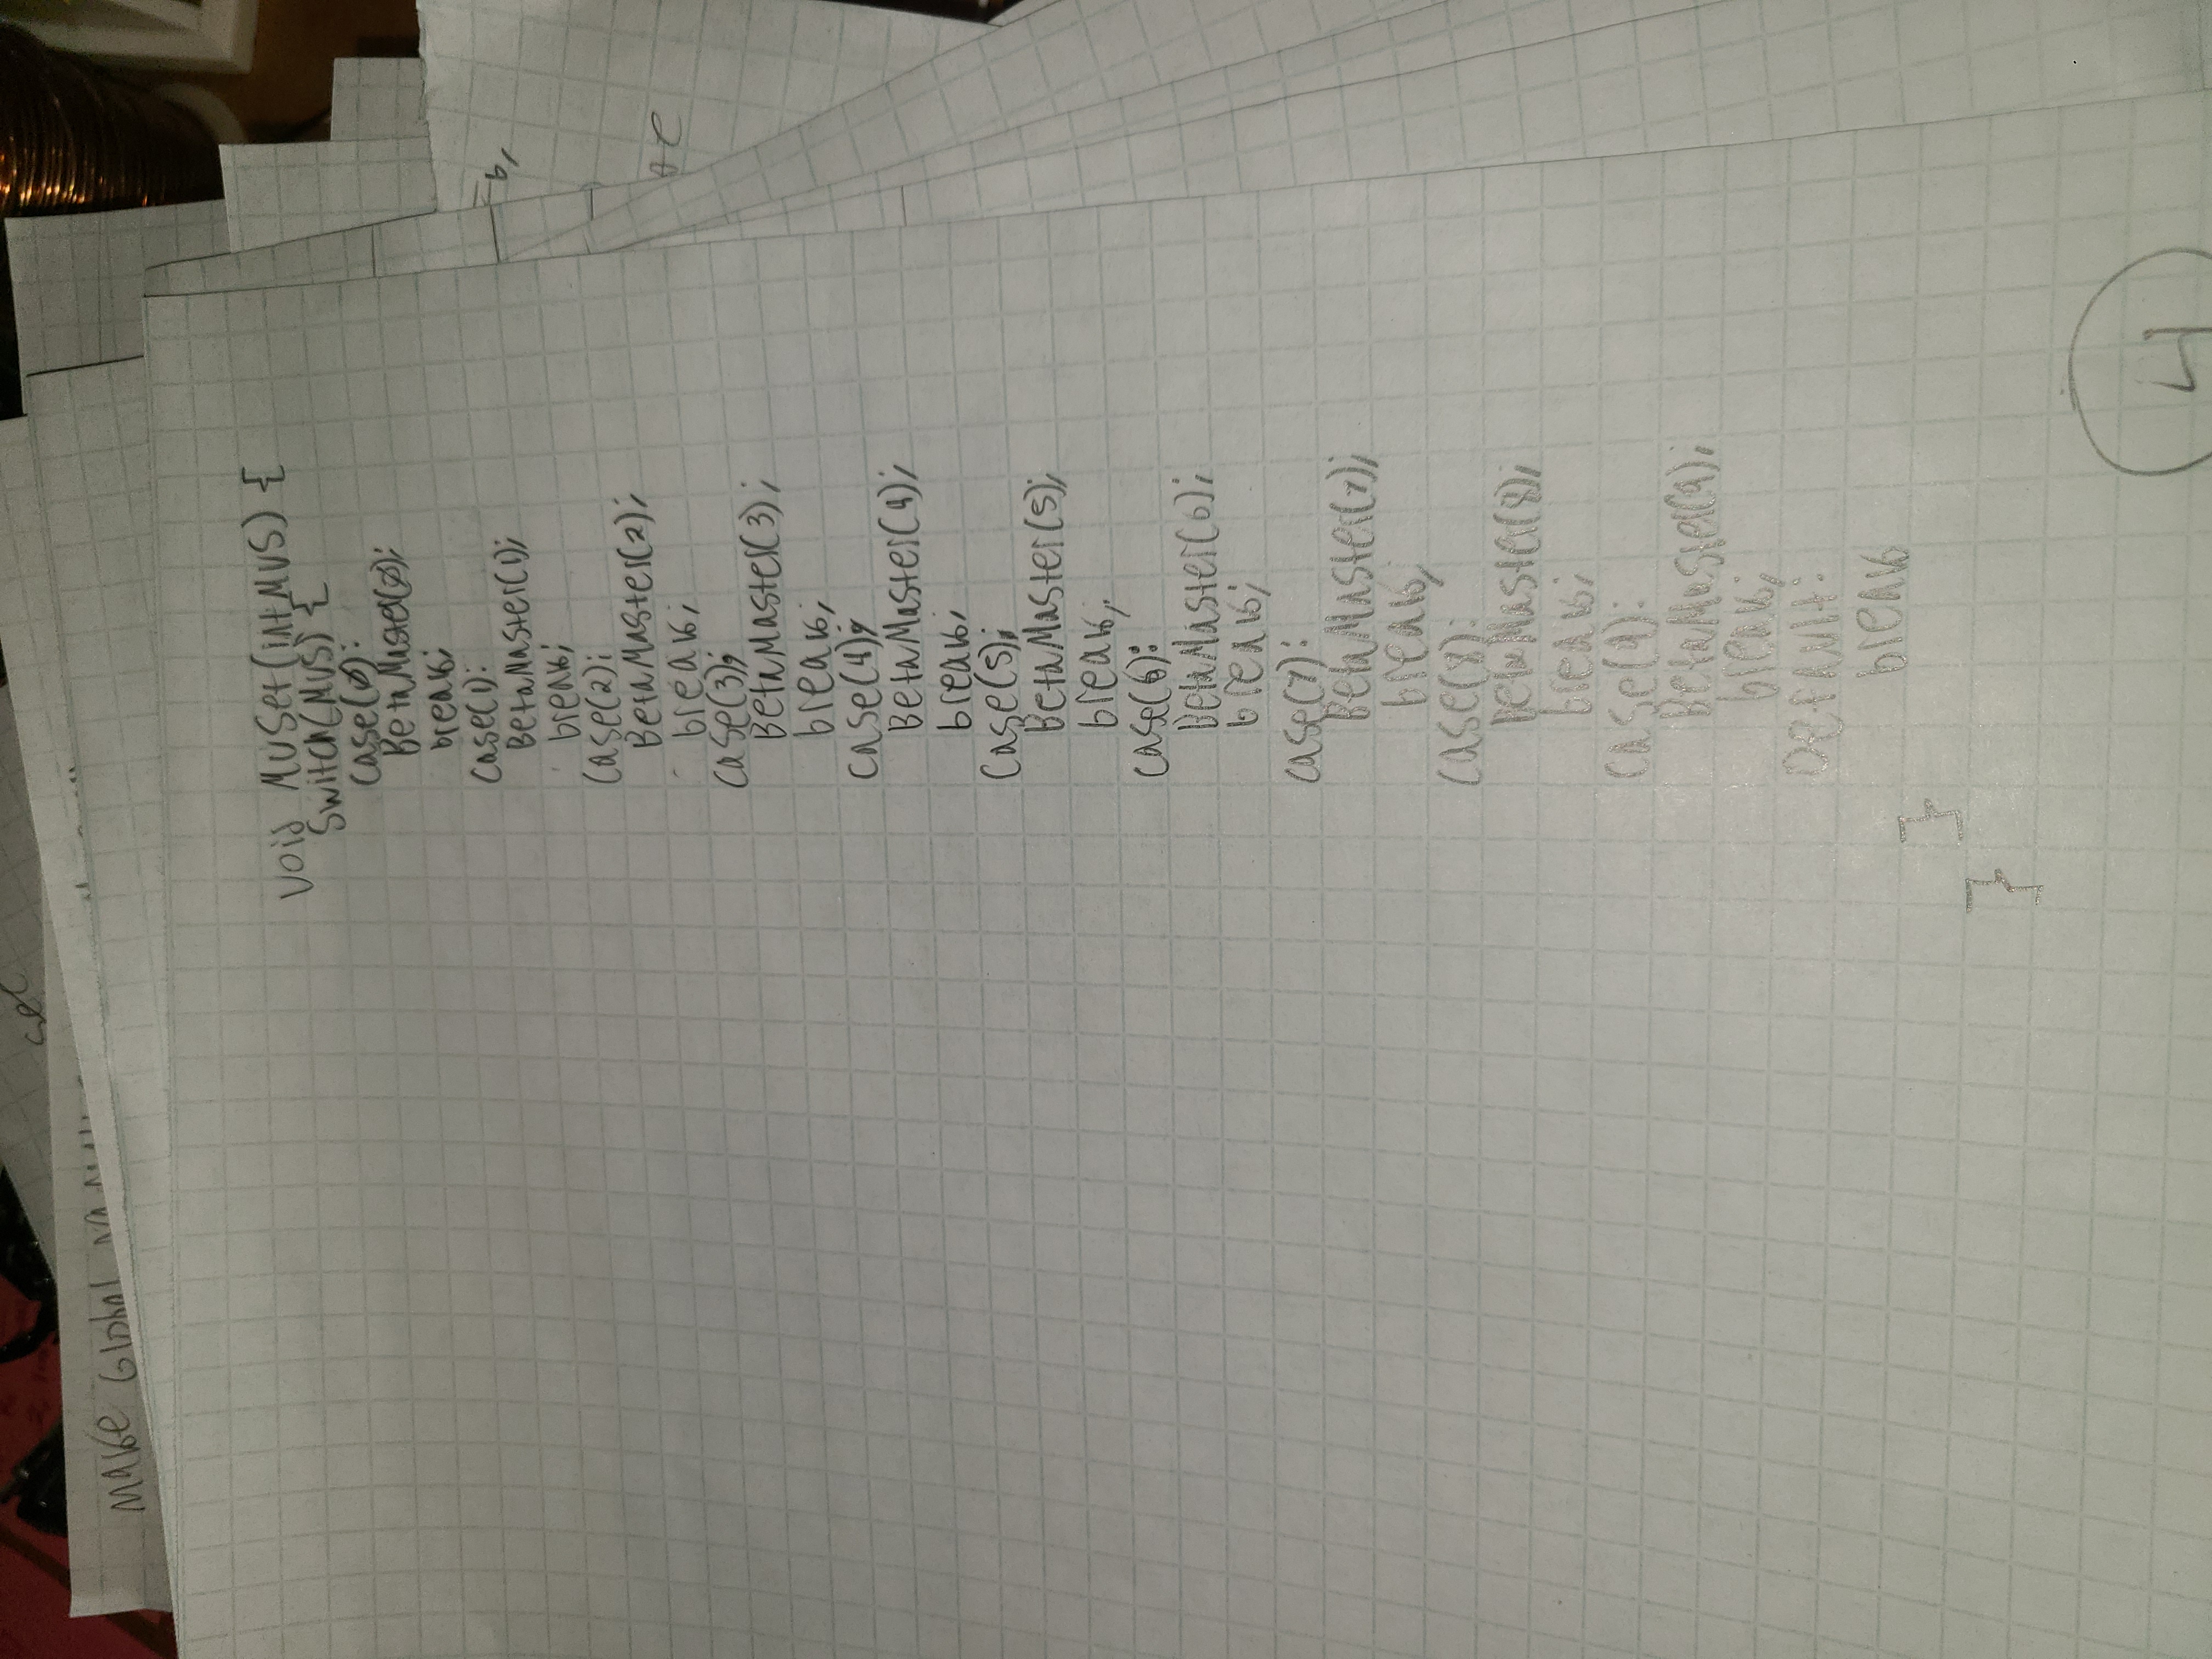 set
make Global
void MVSet(int MVS) {
switch(MVS) {
case(0):
BetaMaster(0);
break;
case(1):
BetaMaster(1);
break;
case(2):
BetaMaster(2);
break;
case(3);
BetaMaster(3);
break;
case(4);
BetaMaster(4);
break;
case(5);
BetaMaster(5);
break;
case(6):
BetaMaster(6);
break;
case(7):
BetaMaster(7);
break;
case(8):
BetaMaster(8);
break;
case(9):
BetaMaster(9);
break;
Default:
break
}
}
4